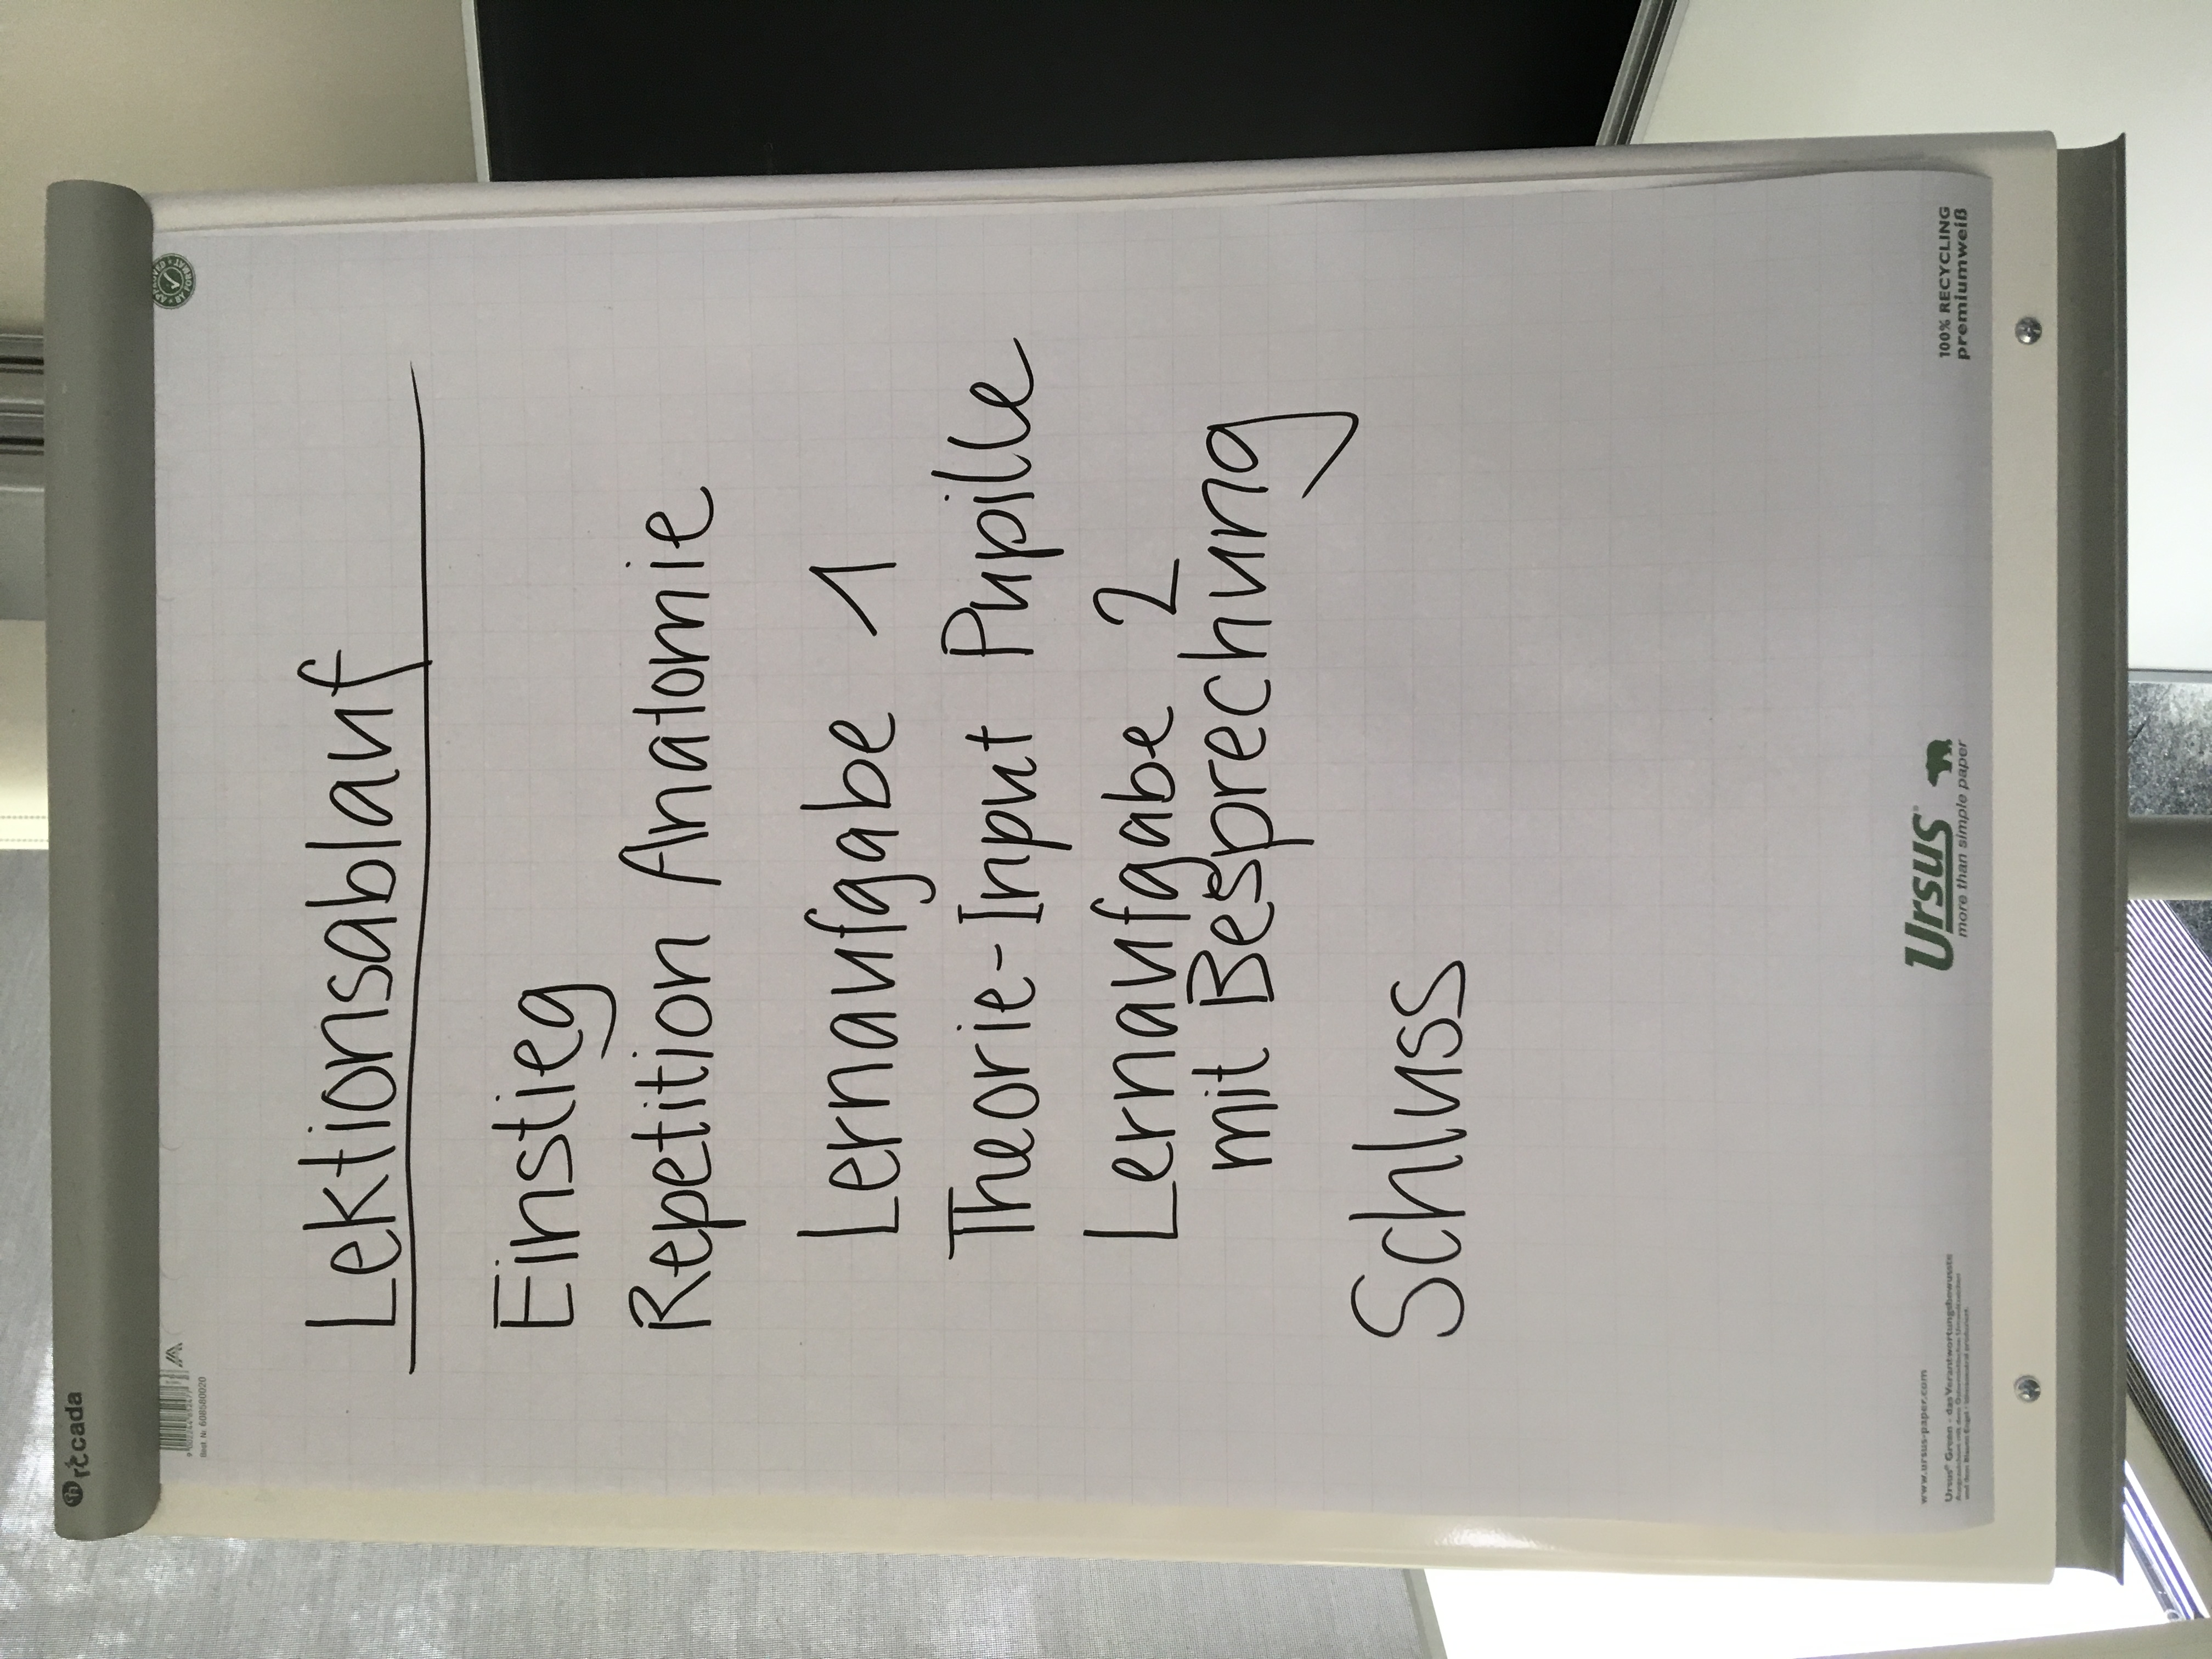 riccada
Best. Nr. 608580020
APPROVED BY FORMAT
Lektionsablauf
Einstieg
Repetition Anatomie
Lernaufgabe 1
Theorie-Input Pupille
Lernaufgabe 2
mit Besprechung
Schluss
www.ursus-paper.com
Ursus® Green - das Verantwortungsbewusste
Ursus®
more than simple paper
100% RECYCLING
premiumweiß